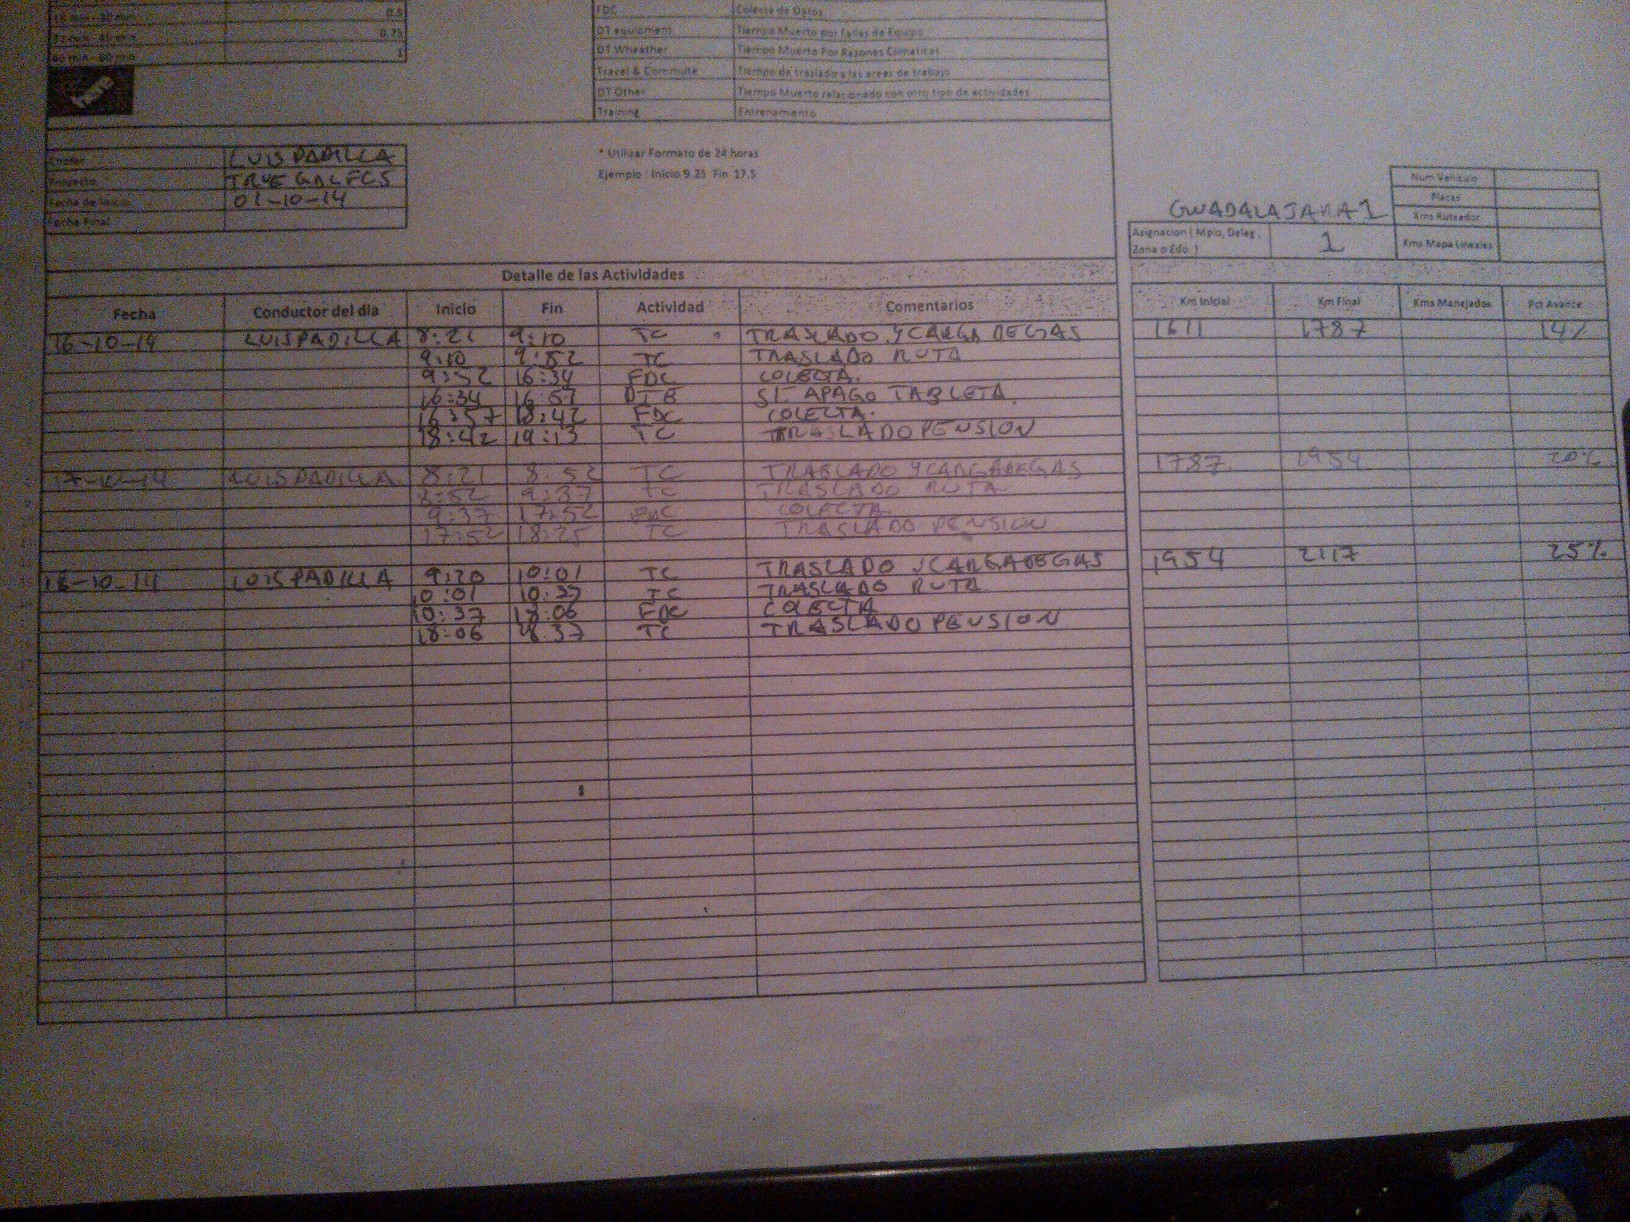 16 min - 30 min 0.5
31 min - 45 min 0.75
46 min - 60 min 1
FDC Colecta de Datos
DT equipment Tiempo Muerto por Fallas de Equipo
DT Wheather Tiempo Muerto Por Razones Climaticas
Travel & Commute Tiempo de traslado a las areas de trabajo
DT Other Tiempo Muerto relacionado con otro tipo de actividades
Training Entrenamiento
here
LUIS PADILLA
Proyecto TRUE GDL FCS
Fecha de Inicio 01-10-14
Fecha Final
* Utilizar Formato de 24 horas
Ejemplo : Inicio 9.25 Fin 17.5
Num Vehiculo
Placas
GUADALAJARA 1 Kms Ruteador
Asignacion ( Mpio, Deleg, Zona o Edo. ) 1 Kms Mapa Lineales
Detalle de las Actividades
Fecha Conductor del dia Inicio Fin Actividad Comentarios Km Inicial Km Final Kms Manejados Pct Avance
16-10-14 LUIS PADILLA 8:21 9:10 TC TRASLADO Y CARGA DE GAS 1611 1787 14%
9:10 9:52 TC TRASLADO RUTA
9:52 16:34 FDC COLECTA.
16:34 16:57 SE APAGO TABLETA.
16:57 18:42 FDC COLECTA.
18:42 19:13 TC TRASLADO PENSION
17-10-14 LUIS PADILLA 8:21 8:52 TC TRASLADO Y CARGA DE GAS 1787 1954 20%
8:52 9:37 TC TRASLADO RUTA
9:37 17:52 FDC COLECTA
17:52 18:25 TC TRASLADO PENSION
18-10-14 LUIS PADILLA 9:20 10:01 TC TRASLADO Y CARGA DE GAS 1954 2117 25%
10:01 10:37 TC TRASLADO RUTA
10:37 18:06 FDC COLECTA
18:06 18:37 TC TRASLADO PENSION